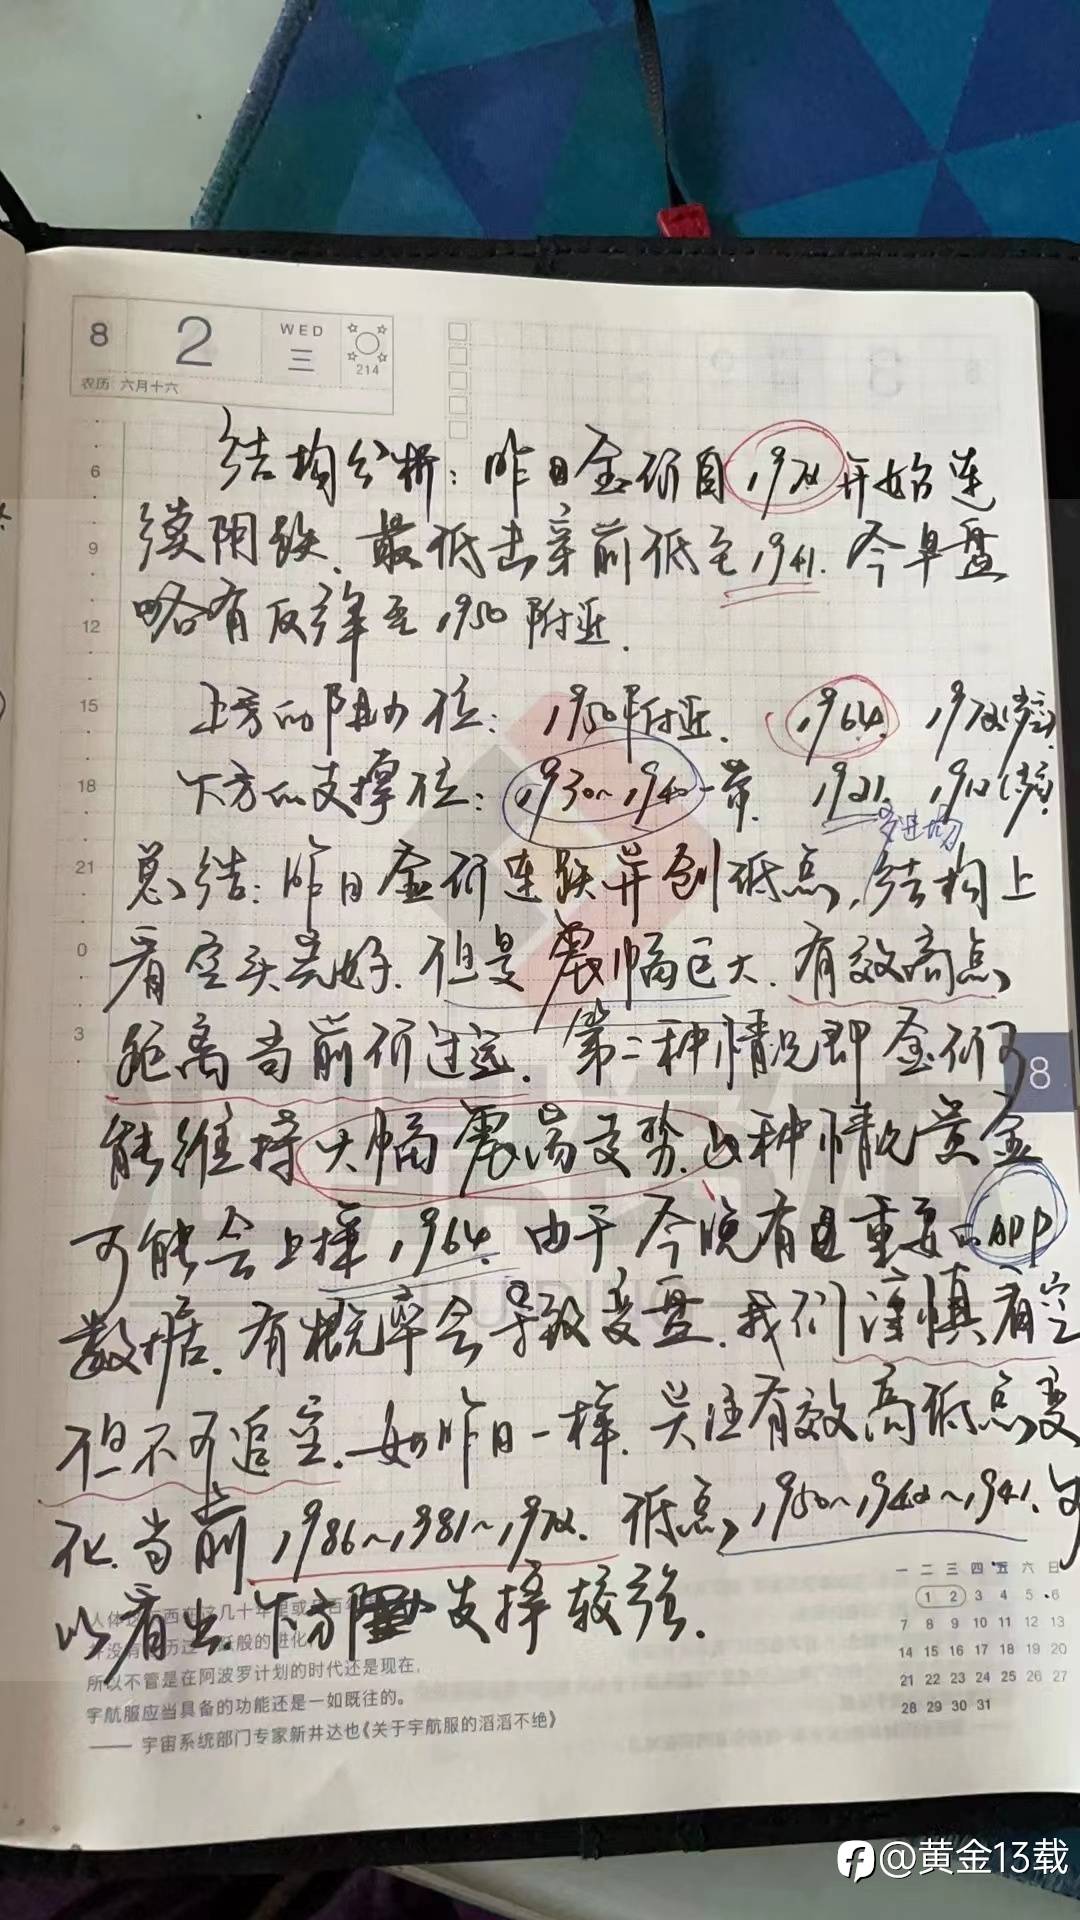 8 2 WED 三 214
农历 六月十六
结构分析：昨日金价自1972开始连
续阴跌.最低击穿前低至1941.今早盘
略有反弹至1950附近.
上方的阻力位：1950附近. 1964. 1972(强)
下方的支撑位：1930~1940一带 1921. 1912(强)
多进场
总结：昨日金价连跌并创低点,结构上
看空头完好.但是震幅已大.有效高点
距离当前价过远.第二种情况即金价可
能维持大幅震荡走势.此种情况黄金
可能会上探1964.由于今晚有重要的ADP
数据.有概率会导致变盘.我们谨慎看空
但不可追空.如昨日一样.关注有效高低点变
化.当前1986~1981~1972.低点,1950~1942~1941.可
以看出.下方支撑较强.
6
9
12
15
18
21
0
3
8
一 二 三 四 五 六 日
1 2 3 4 5 6
7 8 9 10 11 12 13
14 15 16 17 18 19 20
21 22 23 24 25 26 27
28 29 30 31
所以不管是在阿波罗计划的时代还是现在,
宇航服应当具备的功能还是一如既往的。
—— 宇宙系统部门专家新井达也《关于宇航服的滔滔不绝》
@黄金13载